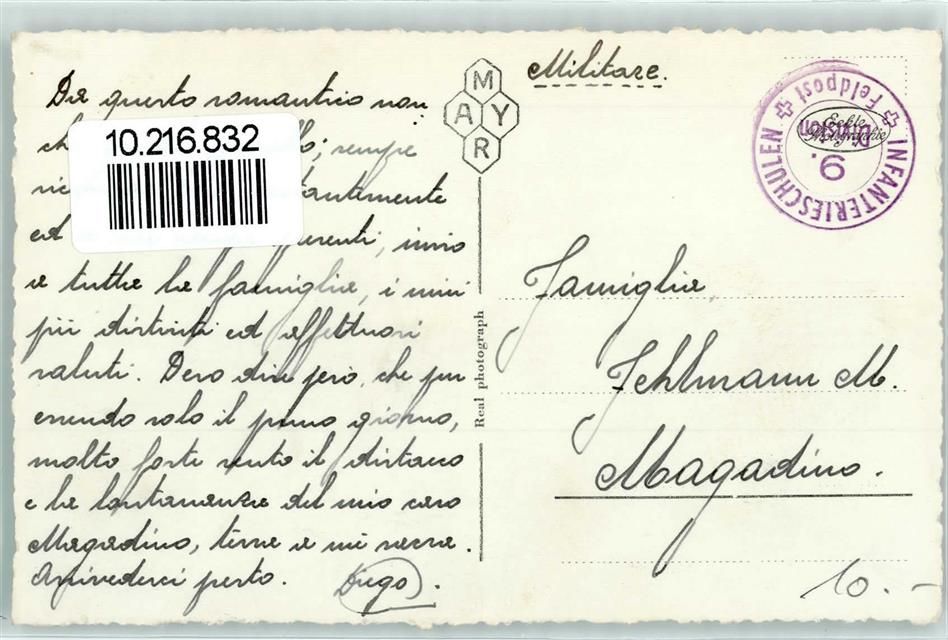 Da questo romantico non
ch lo; sempre
ri tantemente
ed presenti, invio
a tutta la famiglia, i miei
più distinti ed affettuosi
saluti. Devo dire però, che pur
essendo solo il primo giorno,
molto forte sento il distacco
e la lontananza dal mio caro
Magadino, terra a me sacra.
Arrivederci presto. Dugo.
10.216.832
MAYR
Real photograph
Militare.
INFANTERIESCHULEN
Feldpost
9.
Division
Echte
Photographie
Famiglia
Fehlmann M.
Magadino.
10.-